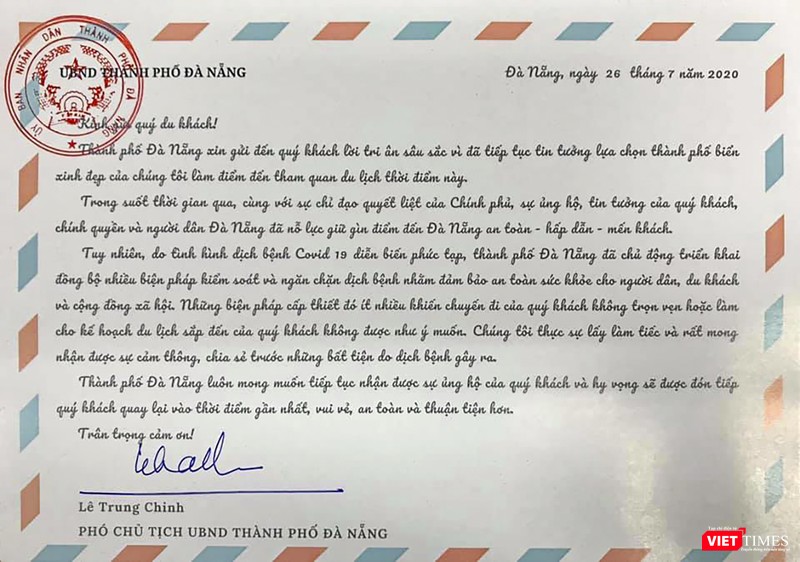 ỦY BAN NHÂN DÂN THÀNH PHỐ ĐÀ NẴNG
UBND THÀNH PHỐ ĐÀ NẴNG
Đà Nẵng, ngày 26 tháng 7 năm 2020
Kính gửi quý du khách!
Thành phố Đà Nẵng xin gửi đến quý khách lời tri ân sâu sắc vì đã tiếp tục tin tưởng lựa chọn thành phố biển
xinh đẹp của chúng tôi làm điểm đến tham quan du lịch thời điểm này.
Trong suốt thời gian qua, cùng với sự chỉ đạo quyết liệt của Chính phủ, sự ủng hộ, tin tưởng của quý khách,
chính quyền và người dân Đà Nẵng đã nỗ lực giữ gìn điểm đến Đà Nẵng an toàn - hấp dẫn - mến khách.
Tuy nhiên, do tình hình dịch bệnh Covid 19 diễn biến phức tạp, thành phố Đà Nẵng đã chủ động triển khai
đồng bộ nhiều biện pháp kiểm soát và ngăn chặn dịch bệnh nhằm đảm bảo an toàn sức khỏe cho người dân, du khách
và cộng đồng xã hội. Những biện pháp cấp thiết đó ít nhiều khiến chuyến đi của quý khách không trọn vẹn hoặc làm
cho kế hoạch du lịch sắp đến của quý khách không được như ý muốn. Chúng tôi thực sự lấy làm tiếc và rất mong
nhận được sự cảm thông, chia sẻ trước những bất tiện do dịch bệnh gây ra.
Thành phố Đà Nẵng luôn mong muốn tiếp tục nhận được sự ủng hộ của quý khách và hy vọng sẽ được đón tiếp
quý khách quay lại vào thời điểm gần nhất, vui vẻ, an toàn và thuận tiện hơn.
Trân trọng cảm ơn!
Lê Trung Chinh
PHÓ CHỦ TỊCH UBND THÀNH PHỐ ĐÀ NẴNG
VIETTIMES